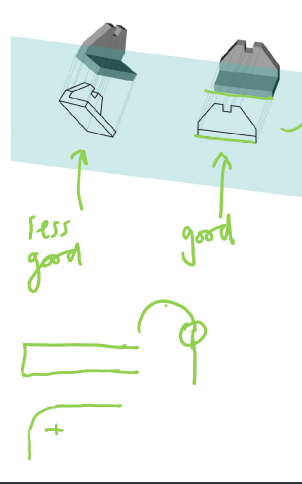 less
good
good